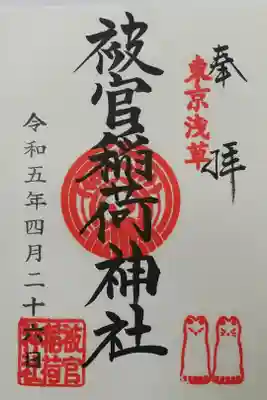 奉拝
東京浅草
被官稲荷神社
令和五年四月二十六日
被官稲荷神社